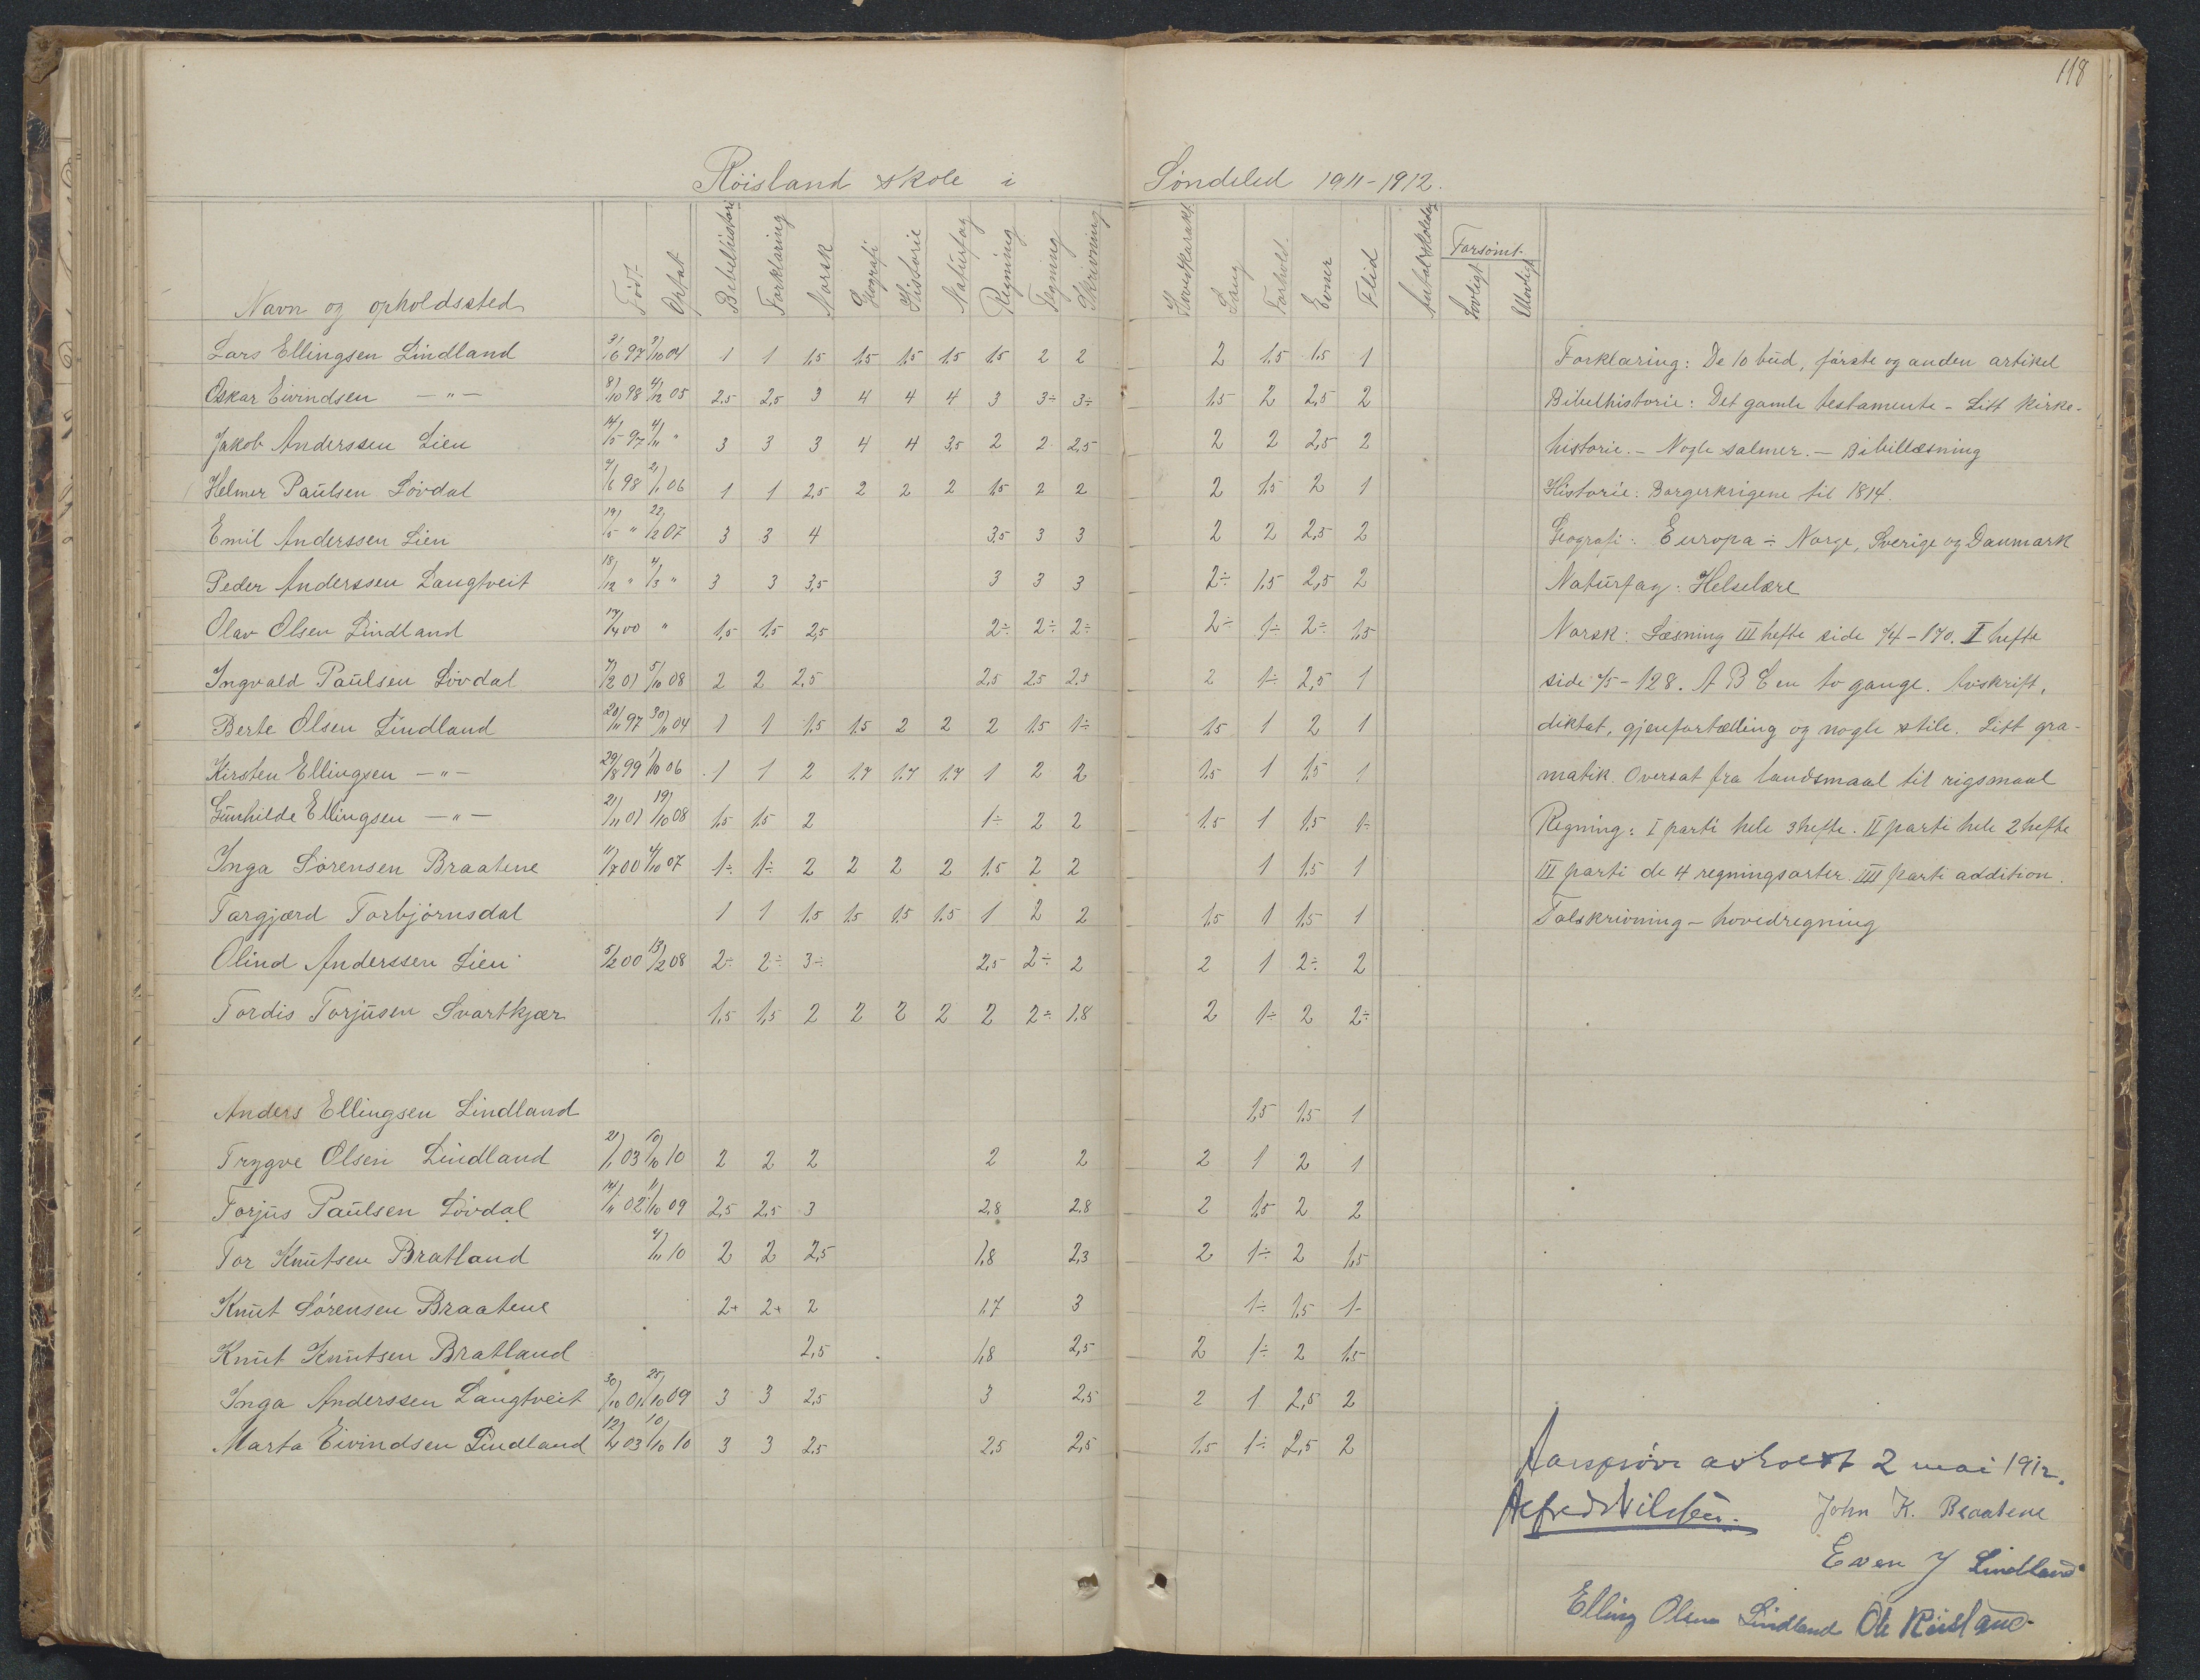 118
Röisland skole i Søndeled 1911-1912.
Navn og opholdssted Fød. Optat Bibelhistorie Forklaring Norsk Geografi Historie Naturfag Regning Tegning Skrivning Hovedkarakt. Sang Forhold Evner Flid Antal skoledag Forsømt. Lovligt Ulovligt
Lars Ellingsen Lindland 3/6 97 3/10 04 1 1 1,5 1,5 1,5 1,5 1,5 2 2 2 1,5 1,5 1 Forklaring: De 10 bud, første og anden artikel
Oskar Eivindsen —"— 8/10 98 4/12 05 2,5 2,5 3 4 4 4 3 3÷ 3÷ 1,5 2 2,5 2 Bibelhistorie: Det gamle testamente - Litt kirke-
Jakob Anderssen Lien 14/5 97 4/11 " 3 3 3 4 4 3,5 2 2 2,5 2 2 2,5 2 historie. - Nogle salmer. - Bibellæsning
Helmer Paulsen Løvdal 9/6 98 2/1 06 1 1 2,5 2 2 2 1,5 2 2 2 1,5 2 1 Historie: Borgerkrigene til 1814.
Emil Anderssen Lien 19/5 " 22/2 07 3 3 4 3,5 3 3 2 2 2,5 2 Geografi: Europa ÷ Norge, Sverige og Danmark
Peder Anderssen Langtveit 18/12 " 4/3 " 3 3 3,5 3 3 3 2÷ 1,5 2,5 2 Naturfag: Helselære
Olav Olsen Lindland 17/4 00 " 1,5 1,5 2,5 2÷ 2÷ 2÷ 2÷ 1÷ 2÷ 1,5 Norsk: Læsning III hefte side 74-170. I hefte
Ingvald Paulsen Løvdal 7/2 01 5/10 08 2 2 2,5 2,5 2,5 2,5 2 1÷ 2,5 1 side 75-128. A B C en to gange. Avskrift,
Berte Olsen Lindland 20/11 97 30/11 04 1 1 1,5 1,5 2 2 2 1,5 1÷ 1,5 1 2 1 diktat, gjenfortælling og nogle stile. Litt gra-
Kirsten Ellingsen —"— 29/8 99 1/10 06 1 1 2 1,7 1,7 1,7 1 2 2 1,5 1 1,5 1 matik. Oversat fra landsmaal til rigsmaal
Gunhilde Ellingsen —"— 21/11 01 19/10 08 1,5 1,5 2 1÷ 2 2 1,5 1 1,5 1÷ Regning: I parti hele 3 hefte. II parti hele 2 hefte
Inga Sørensen Braatene 11/7 00 4/10 07 1÷ 1÷ 2 2 2 2 1,5 2 2 1 1,5 1 III parti de 4 regningsarter. IIII parti addition.
Targjærd Torbjørnsdal 1 1 1,5 1,5 1,5 1,5 1 2 2 1,5 1 1,5 1 Talskrivning - hovedregning
Olind Anderssen Lien 5/2 00 13/2 08 2÷ 2÷ 3÷ 2,5 2÷ 2 2 1 2÷ 2
Tordis Torjusen Svartkjær 1,5 1,5 2 2 2 2 2 2÷ 1,8 2 1÷ 2 2÷
Anders Ellingsen Lindland 1,5 1,5 1
Trygve Olsen Lindland 21/1 03 10/10 10 2 2 2 2 2 2 1 2 1
Torjus Paulsen Løvdal 14/11 02 11/10 09 2,5 2,5 3 2,8 2,8 2 1,5 2 2
Tor Knutsen Bratland 9/11 10 2 2 2,5 1,8 2,3 2 1÷ 2 1,5
Knut Sørensen Braatene 2+ 2+ 2 1,7 3 1÷ 1,5 1-
Knut Knutsen Bratland 2,5 1,8 2,5 2 1÷ 2 1,5
Inga Anderssen Langtveit 30/10 01 25/10 09 3 3 2,5 3 2,5 2 1 2,5 2
Marta Eivindsen Lindland 12/4 03 10/10 10 3 3 2,5 2,5 2,5 1,5 1÷ 2,5 2
Aarsprøve avholdt 2 mai 1912.
Alfred Nilsen. John K. Braatene
Even J Lindland
Elling Olsen Lindland Ole Røisland